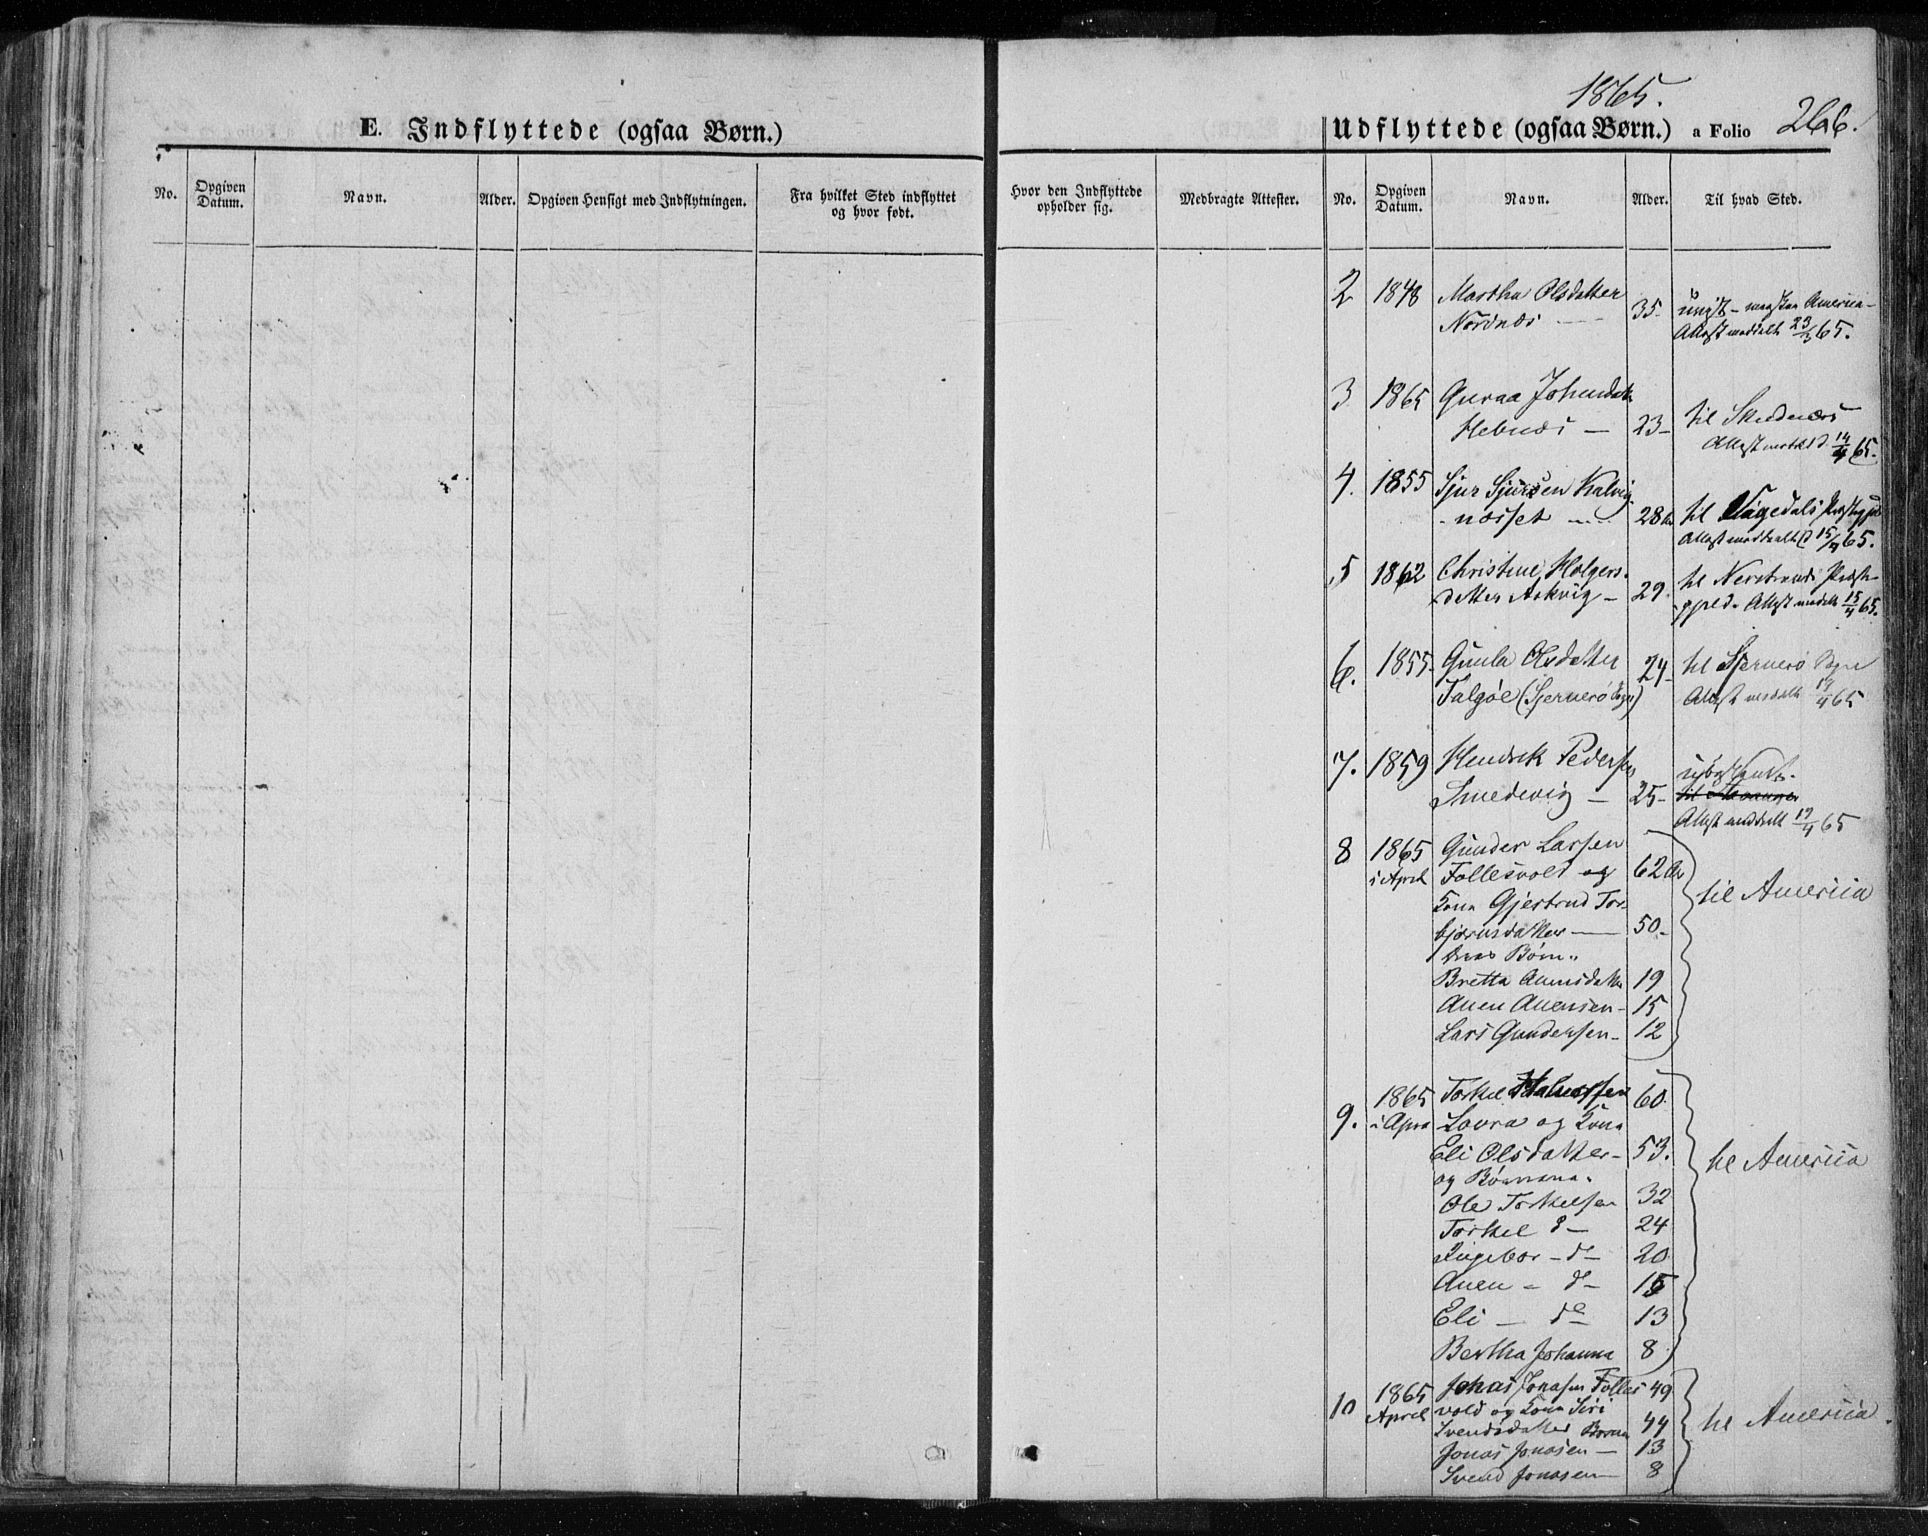 E. Indflyttede (ogsaa Børn.)
No.
Opgiven Datum.
Navn.
Alder.
Opgiven Hensigt med Indflytningen.
Fra hvilket Sted indflyttet
og hvor født.
1865.
Udflyttede (ogsaa Børn.) a Folio 266.
Hvor den Indflyttede
opholder sig.
Medbragte Attester.
No.
Opgiven Datum.
Navn.
Alder.
Til hvad Sted.
2 1848 Martha Olsdatter
Nordnæs — 35. America
Attest meddelt 23/3 65.
3 1865 Guraa
Hebnæs — 23 — til Skudenæs
Attest 14/4 65.
4. 1855 Sjur Sjursen Kalvig
næsset 28 til Præstegjeld
Attest meddeelt 15/4 65.
5 1862 Christine Holgers
datter Askvig — 29. til Nerstrands Præste
gjeld. Attest meddelt 15/4 65.
6. 1855 Gunla Olsdatter 24 til Sjernerø Sogn
Talgøe (Sjernerø Sogn) Attest meddelt 19/4 65
7. 1859 Hendrik Pedersen ubekjendt.
Smedevig — 25 — til Stavanger
Attest meddelt 19/4 65
8 1865 Gunder Larsen
i April Follesvold og 62 Aar
Kone Gjertrud Tor
bjørnsdatter — 50. til America
deres Børn.
Bretta Anensdatter 19
Anen Anensen — 15
Lars Gundersen — 12
9. 1865 Torkel 60.
i April Lovra og Kone
Eli Olsdatter — 53. til America
og Børnene.
Ole Torkelsen 32
Torkel d — 24
Ingebor — do — 20
Anen — do — 15
Eli — do 13
Bertha Johanna 8
10 1865 Jonas Jonasen Folles 49
April vold og Kone Siri
Svendsdatter Børn 44 til America.
Jonas Jonasen — 13
Svend Jonasen — 8